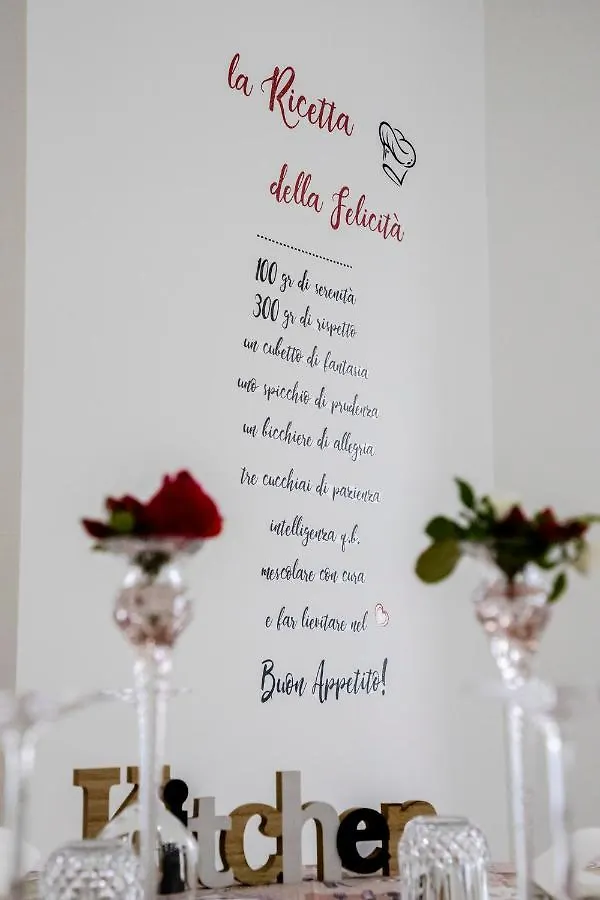 la Ricetta
della Felicità
100 gr di serenità
300 gr di rispetto
un cubetto di fantasia
uno spicchio di prudenza
un bicchiere di allegria
tre cucchiai di pazienza
intelligenza q.b.
mescolare con cura
e far lievitare nel
Buon Appetito!
Kitchen